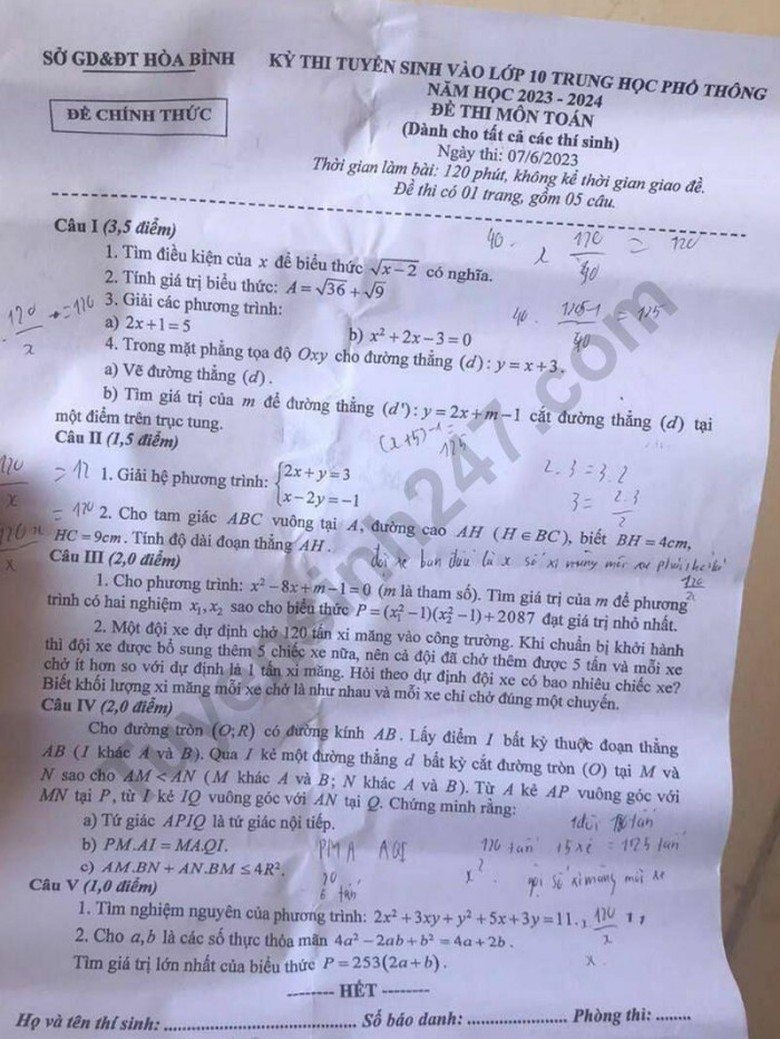 SỞ GD&ĐT HÒA BÌNH
ĐỀ CHÍNH THỨC
KỲ THI TUYỂN SINH VÀO LỚP 10 TRUNG HỌC PHỔ THÔNG
NĂM HỌC 2023 - 2024
ĐỀ THI MÔN TOÁN
(Dành cho tất cả các thí sinh)
Ngày thi: 07/6/2023
Thời gian làm bài: 120 phút, không kể thời gian giao đề.
Đề thi có 01 trang, gồm 05 câu.
Câu I (3,5 điểm)
1. Tìm điều kiện của x để biểu thức √(x−2) có nghĩa.
2. Tính giá trị biểu thức: A = √36 + √9
3. Giải các phương trình:
a) 2x+1=5 b) x² + 2x − 3 = 0
4. Trong mặt phẳng tọa độ Oxy cho đường thẳng (d): y = x+3.
a) Vẽ đường thẳng (d).
b) Tìm giá trị của m để đường thẳng (d'): y = 2x+m−1 cắt đường thẳng (d) tại
một điểm trên trục tung.
Câu II (1,5 điểm)
1. Giải hệ phương trình: { 2x+y=3
x−2y=−1
2. Cho tam giác ABC vuông tại A, đường cao AH (H∈BC), biết BH = 4cm,
HC = 9cm. Tính độ dài đoạn thẳng AH.
Câu III (2,0 điểm)
1. Cho phương trình: x² − 8x + m − 1 = 0 (m là tham số). Tìm giá trị của m để phương
trình có hai nghiệm x₁, x₂ sao cho biểu thức P = (x₁² −1)(x₂² −1) + 2087 đạt giá trị nhỏ nhất.
2. Một đội xe dự định chở 120 tấn xi măng vào công trường. Khi chuẩn bị khởi hành
thì đội xe được bổ sung thêm 5 chiếc xe nữa, nên cả đội đã chở thêm được 5 tấn và mỗi xe
chở ít hơn so với dự định là 1 tấn xi măng. Hỏi theo dự định đội xe có bao nhiêu chiếc xe?
Biết khối lượng xi măng mỗi xe chở là như nhau và mỗi xe chỉ chở đúng một chuyến.
Câu IV (2,0 điểm)
Cho đường tròn (O;R) có đường kính AB. Lấy điểm I bất kỳ thuộc đoạn thẳng
AB (I khác A và B). Qua I kẻ một đường thẳng d bất kỳ cắt đường tròn (O) tại M và
N sao cho AM < AN (M khác A và B; N khác A và B). Từ A kẻ AP vuông góc với
MN tại P, từ I kẻ IQ vuông góc với AN tại Q. Chứng minh rằng:
a) Tứ giác APIQ là tứ giác nội tiếp.
b) PM.AI = MA.QI.
c) AM.BN + AN.BM ≤ 4R².
Câu V (1,0 điểm)
1. Tìm nghiệm nguyên của phương trình: 2x² + 3xy + y² + 5x + 3y = 11.
2. Cho a,b là các số thực thỏa mãn 4a² − 2ab + b² = 4a + 2b.
Tìm giá trị lớn nhất của biểu thức P = 253(2a+b).
-------- HẾT --------
Họ và tên thí sinh: ........ Số báo danh: ........ Phòng thi: ........
PMA AQI
120 tấn 15 xe = 125 tấn
gọi số xi măng mỗi xe
Tuyensinh247.com